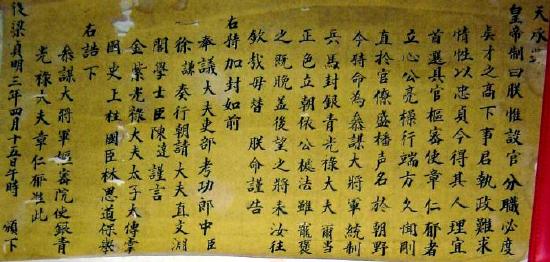 天承
皇帝制曰朕惟設官分職必度
矣才之高下事君執政難求
惰性以忠貞今得其人理宜
首選具官樞密使章仁郁者
立心公亮操行端方久聞剛
直於官僚盛播声名於朝野
今特命為叅謀大將軍統制
兵馬封銀青光祿大夫爾當
正色立朝依公槐法雖寵褒
之既晚蓋後望之將来汝往
欽哉毋替 朕命謹告
右特加封如前
奉議大夫吏部考功郎中臣
徐謀奏行朝請大夫直文淵
閣學士臣陳達謹言
金紫光祿大夫太子太傅掌
國史上柱國臣林思道保舉
右誥下
叅謀大將軍樞密院使銀青
光祿大夫章仁郁准此
後梁貞明三年四月十五日午時 頒下